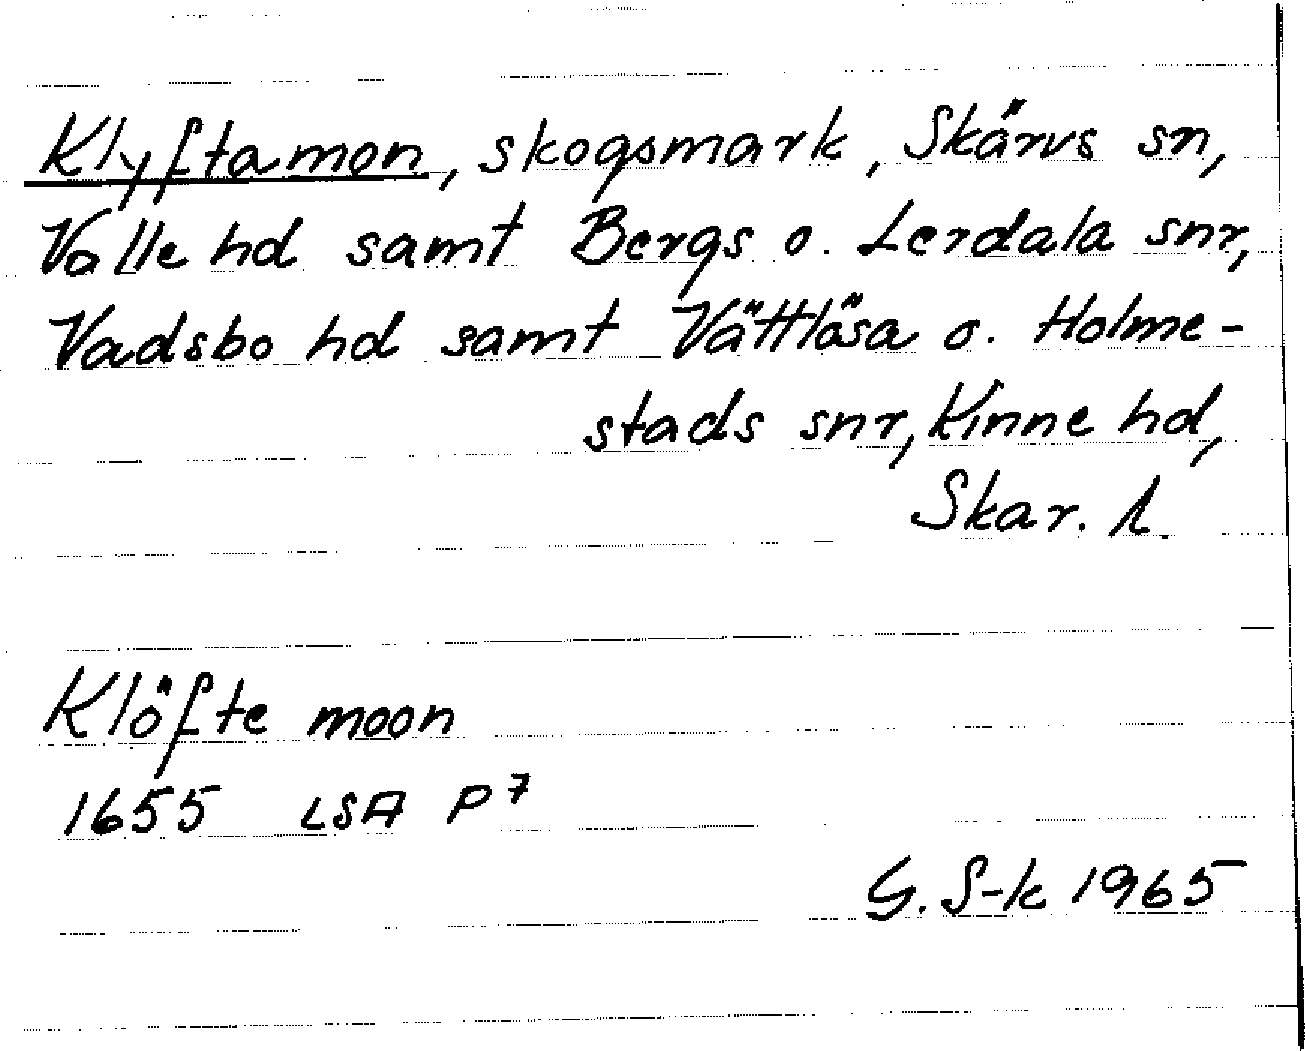 Klyftamon, skogsmark, Skärvs sn,
Valle hd samt Bergs o. Lerdala snr,
Vadsbo hd samt Vättlösa o. Holme-
stads snr, Kinne hd,
Skar. l.
Klöfte moon
1655 LSA P⁷
G. S-k 1965